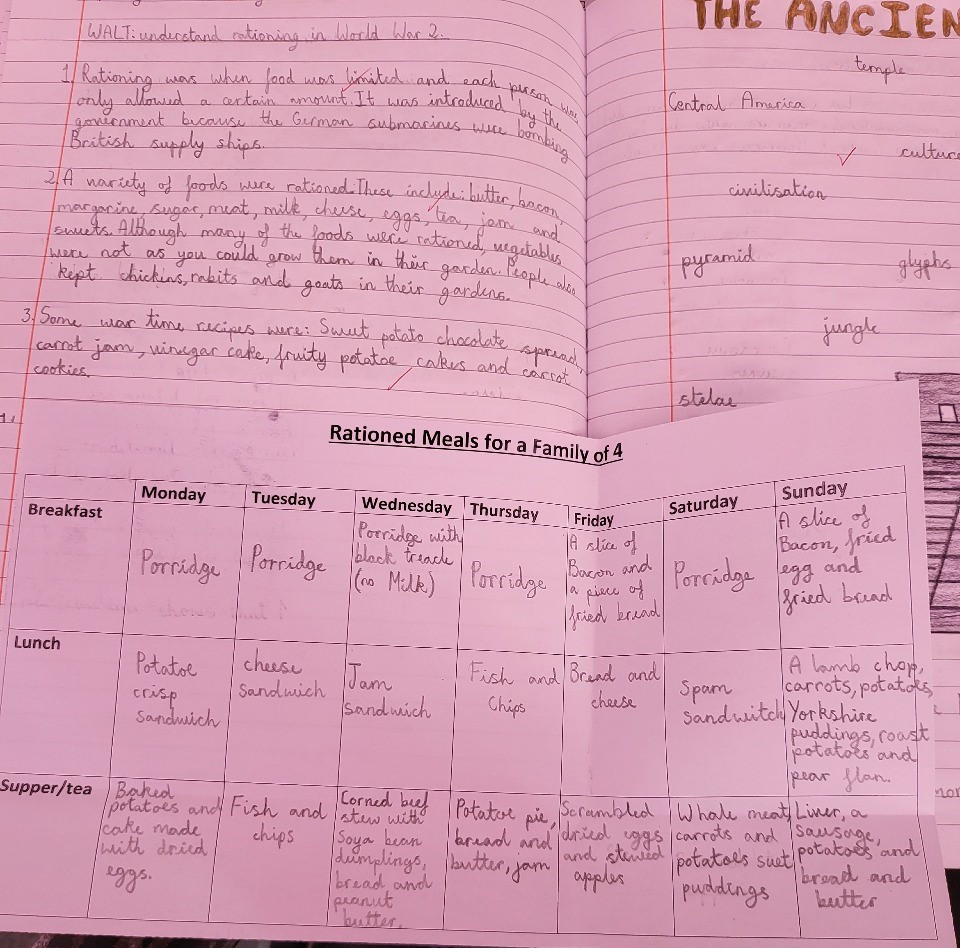 WALT: understand rationing in World War 2.
1. Rationing was when food was limited and each person was
only allowed a certain amount. It was introduced by the
government because the German submarines were bombing
British supply ships.
2. A variety of foods were rationed. These include: butter, bacon,
margarine, sugar, meat, milk, cheese, eggs, tea, jam and
sweets. Although many of the foods were rationed, vegetables
were not as you could grow them in their garden. People also
kept chickins, rabits and goats in their gardens.
3. Some war time recipes were: Sweet potato chocolate spread,
carrot jam, vinegar cake, fruity potatoe cakes and carrot
cookies.
THE ANCIEN
temple
Central America
culture
civilisation
pyramid
glyphs
jungle
stelae
Rationed Meals for a Family of 4
Monday Tuesday Wednesday Thursday Friday Saturday Sunday
Breakfast
Porridge
Porridge
Porridge with
black treacle
(no Milk)
Porridge
A slice of
Bacon and
a piece of
fried bread
Porridge
A slice of
Bacon, fried
egg and
fried bread
Lunch
Potatoe
crisp
sandwich
cheese
sandwich
Jam
sandwich
Fish and
Chips
Bread and
cheese
Spam
sandwitch
A lamb chop,
carrots, potatoes,
Yorkshire
puddings, roast
potatoes and
pear flan.
Supper/tea
Baked
potatoes and
cake made
with dried
eggs.
Fish and
chips
Corned beef
stew with
Soya bean
dumplings,
bread and
peanut
butter.
Potatoe pie,
bread and
butter, jam
Scrambled
dried eggs
and stewed
apples
Whale meat,
carrots and
potatoes suet
puddings
Liver, a
sausage,
potatoes and
bread and
butter